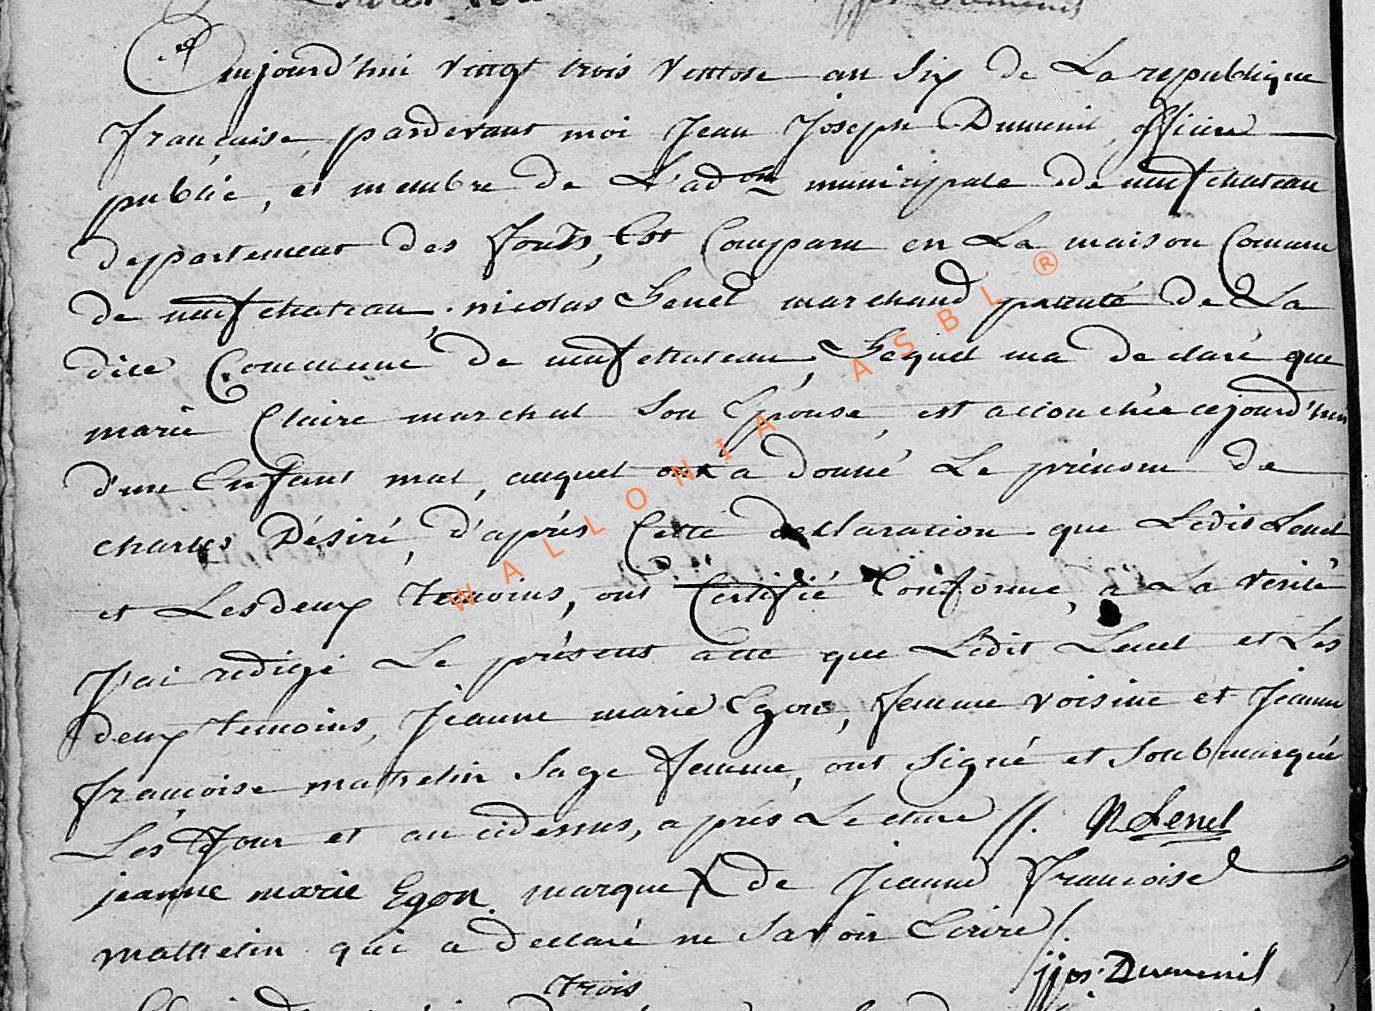 Aujourd'hui vingt trois Ventose an Six de La republique
francaise, pardevant moi Jean Joseph Dumenil officier
public, et membre de L'adon municipale de neufchateau
departement des forêts, Est Comparu en La maison Comune
de neufchateau, nicolas Lenel marchand patenté de La
dite Commune de neufchateau, Lequel ma declaré que
marie Claire marchal Son Epouse, est accouchée cejourd'hui
d'un Enfant mal, auquel on a donné Le prénom de
charles Désiré, d'après Cette declaration que Ledit Lenel
et Les deux temoins, ont Certifié Conforme, à La verité
J'ai redigé Le présent acte que Ledit Lenel et Les
deux temoins, Jeanne marie Egon, femme voisine et Jeanne
francoise mathelin Sage femme, ont Signé et Soubmarqué
Les Jour et an cidessus, après Lecture //. N Lenel
jeanne marie Egon marque X de Jeanne Francoise
mathelin qui a declaré ne Savoir Ecrire /.
jjos. Dumenil
trois
WALLONIA ASBL ®